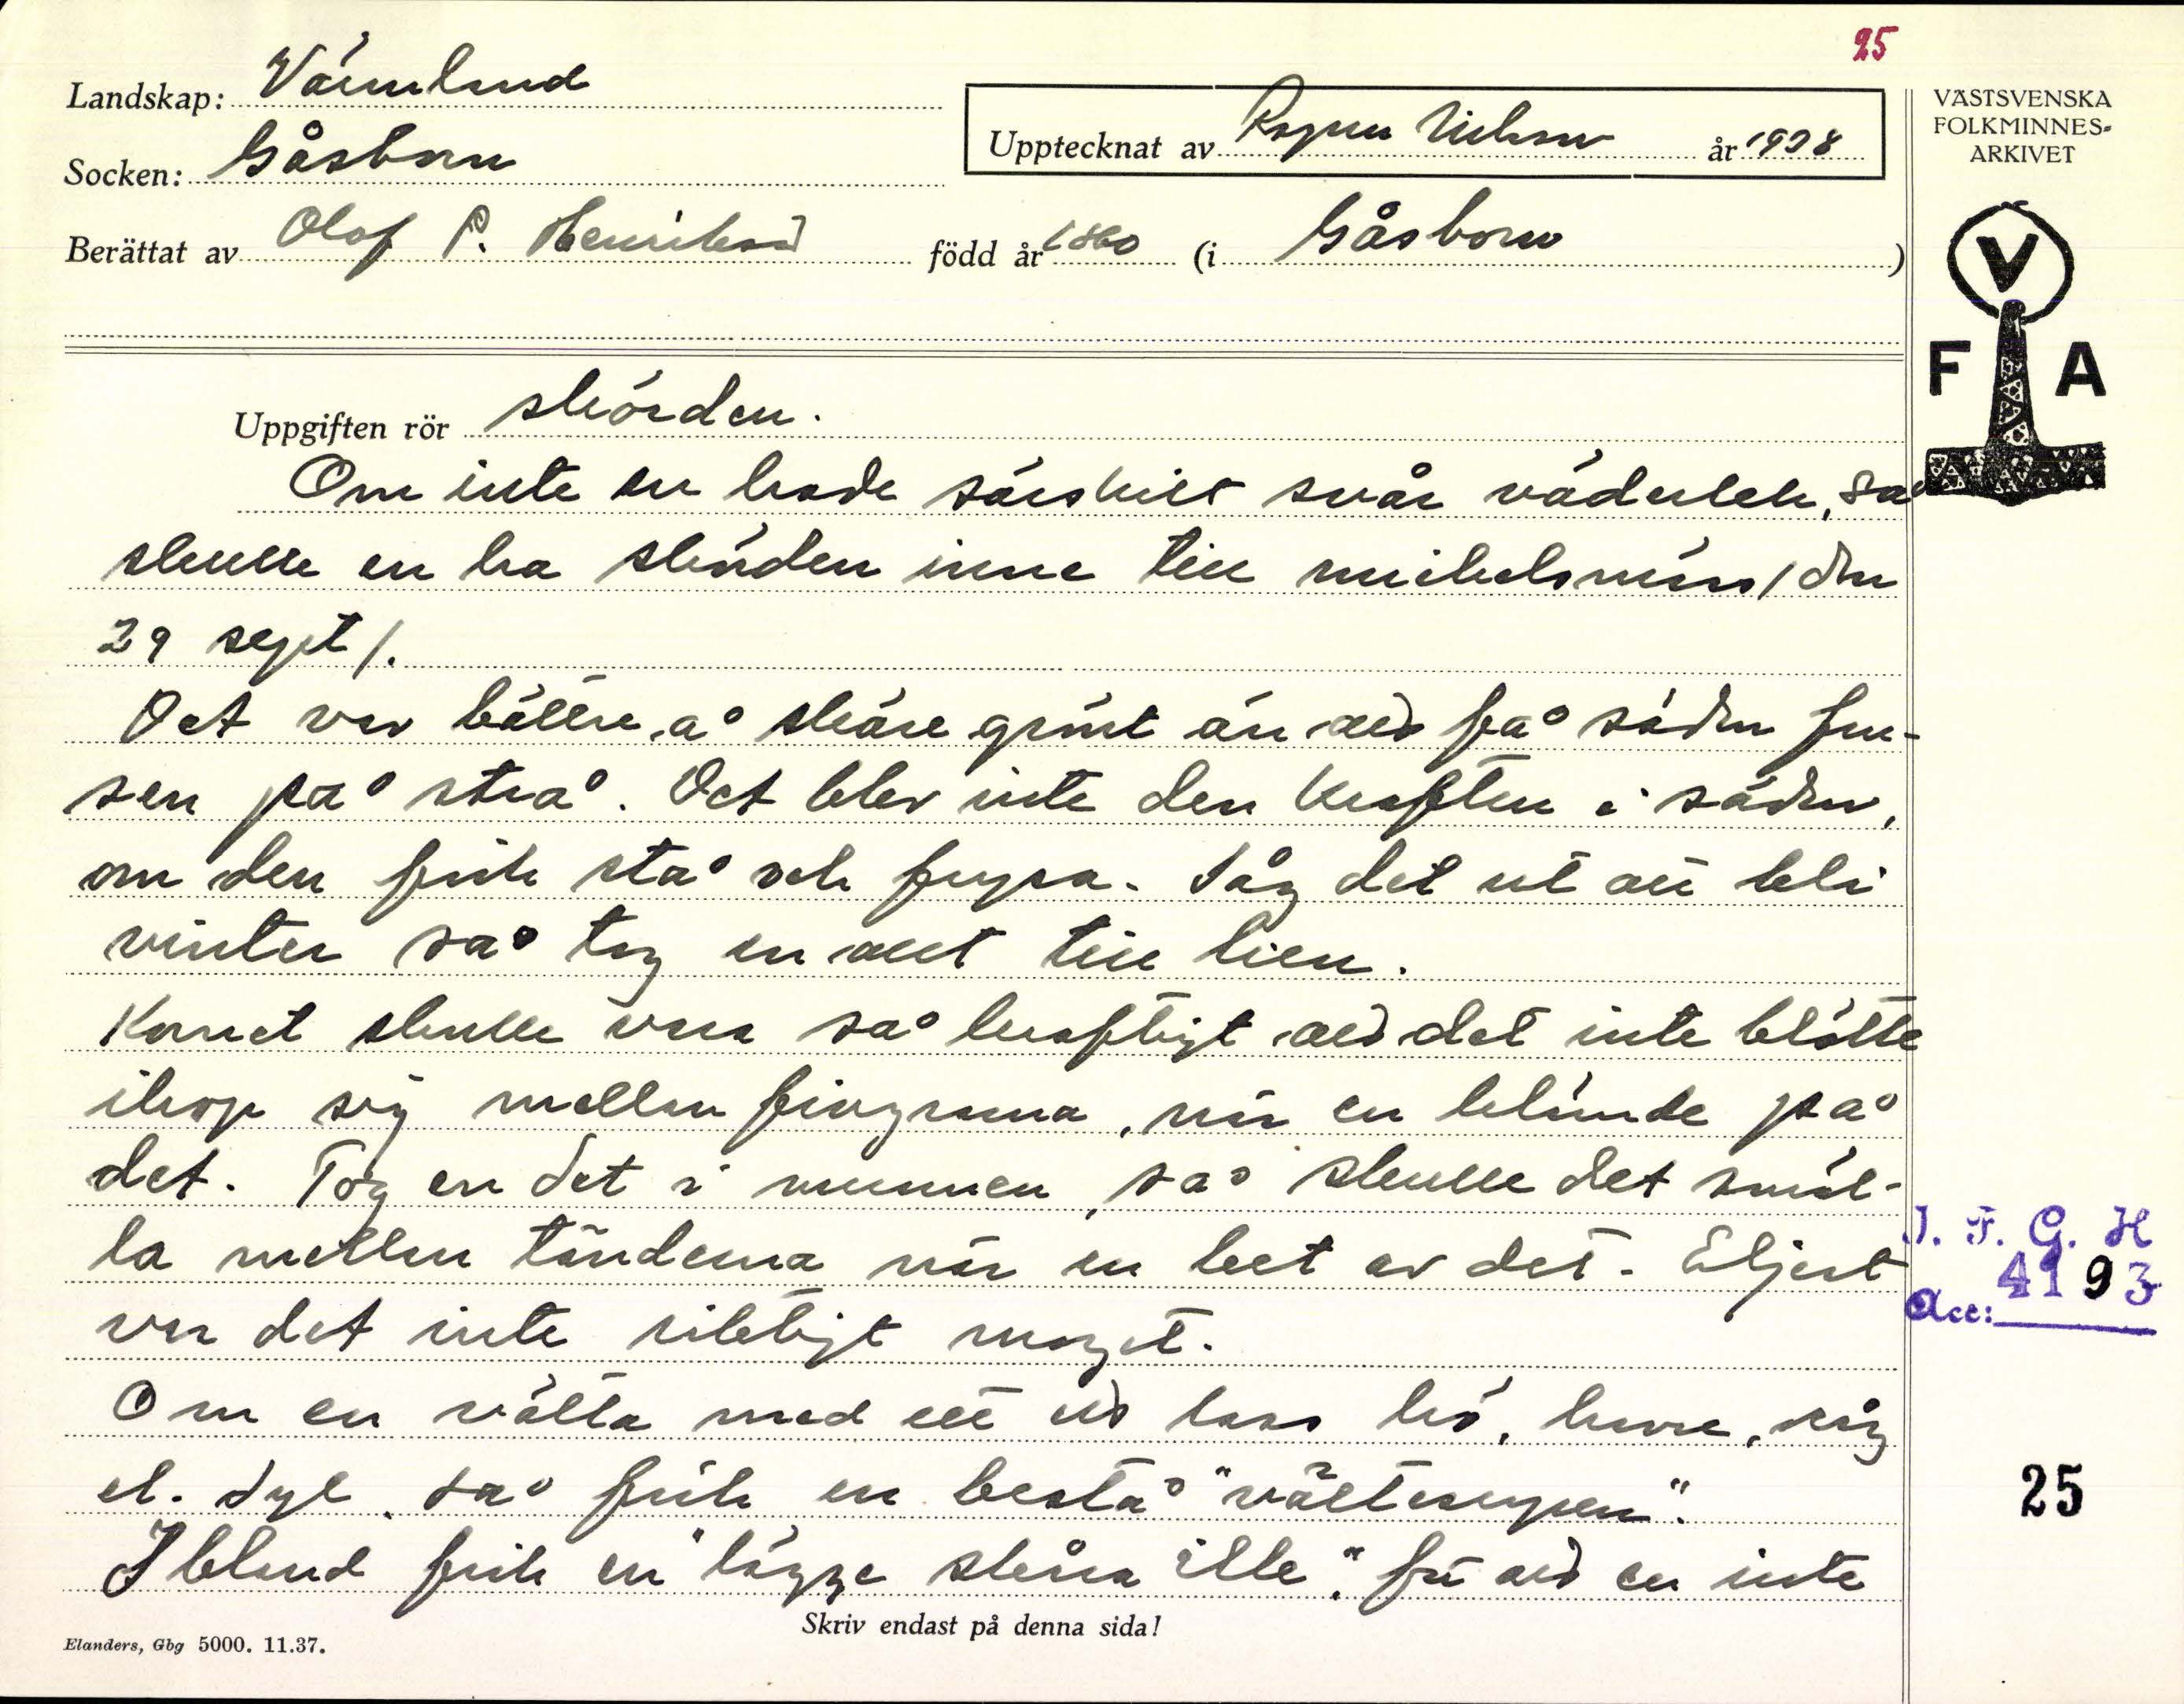 25
Landskap: Värmland
Socken: Gåsborn
Upptecknat av Ragnar Nilsson år 1938
Berättat av Olof P. Henriksson född år 1860 (i Gåsborn)
VÄSTSVENSKA
FOLKMINNES-
ARKIVET
V
F A
Uppgiften rör skörden.
Om inte en hade särskilt svår väderlek, så
skulle en ha skörden inne till mickelsmäss /den
29 sept/.
Det var bättre å skära grönt än att få säden fru-
sen på strå. Det blev inte den kraften i säden,
om den fick stå och frysa. Såg det ut att bli
vinter så tog en allt till lien.
Kornet skulle vara så kraftigt att det inte blötte
ihop sig mellan fingrarna, när en klämde på
det. Tog en det i munnen, så skulle det smäl-
la mellan tänderna när en bet av det. Eljest
var det inte riktigt moget.
Om en välta med ett lass hö, havre, råg
el. dyl. så fick en bestå "vältesupen".
Ibland fick en "lägge skåra ille", för att en inte
I. F. G. H
Acc: 4193
25
Skriv endast på denna sida!
Elanders, Gbg 5000. 11.37.